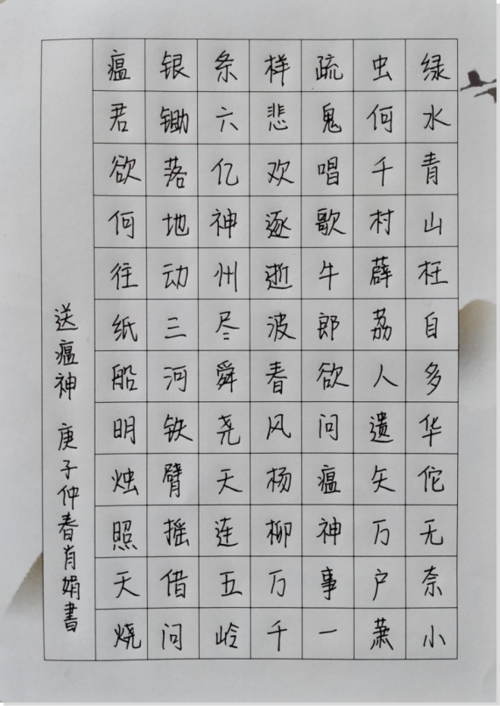 绿水青山枉自多华佗无奈小
虫何千村薜荔人遗矢万户萧
疏鬼唱歌牛郎欲问瘟神事一
样悲欢逐逝波春风杨柳万千
条六亿神州尽舜尧天连五岭
银锄落地动三河铁臂摇借问
瘟君欲何往纸船明烛照天烧
送瘟神 庚子仲春肖娟書